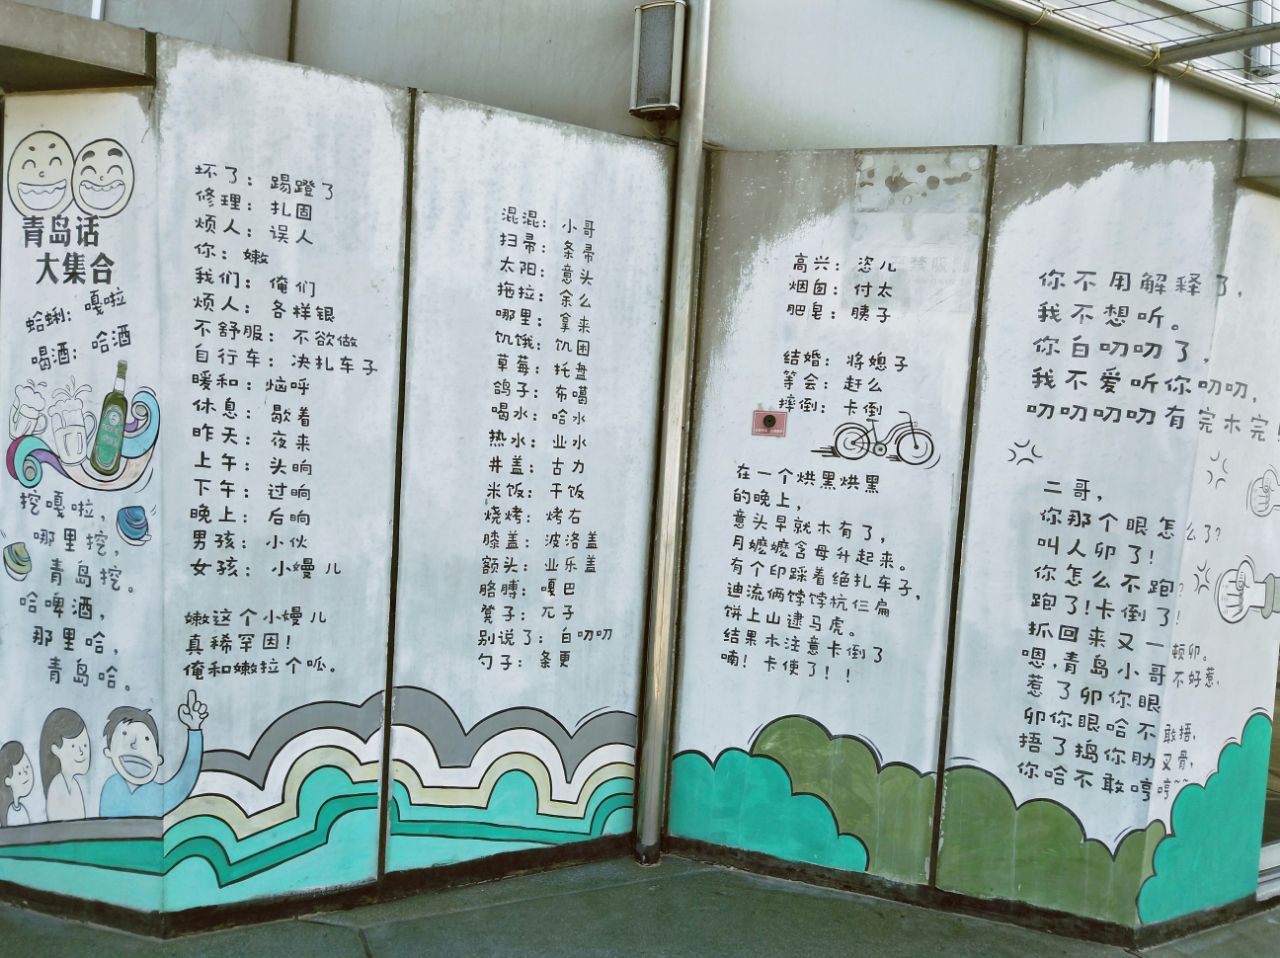 青岛话
大集合
蛤蜊：嘎啦
喝酒：哈酒
挖嘎啦，
哪里挖，
青岛挖。
哈啤酒，
那里哈，
青岛哈。
坏了：踢蹬了
修理：扎固
烦人：误人
你：嫩
我们：俺们
烦人：各样银
不舒服：不欲做
自行车：决扎车子
暖和：恼呼
休息：歇着
昨天：夜来
上午：头晌
下午：过晌
晚上：后晌
男孩：小伙
女孩：小嫚儿
嫩这个小嫚儿
真稀罕因！
俺和嫩拉个呱。
混混：小哥
扫帚：条帚
太阳：意头
拖拉：余么
哪里：拿来
饥饿：饥困
草莓：托盘
鸽子：布噶
喝水：哈水
热水：业水
井盖：古力
米饭：干饭
烧烤：烤右
膝盖：波洛盖
额头：业乐盖
胳膊：嘎巴
凳子：兀子
别说了：白叨叨
勺子：条更
高兴：恣儿
烟囱：付太
肥皂：胰子
结婚：将媳子
等会：赶么
摔倒：卡倒
在一个烘黑烘黑
的晚上，
意头早就木有了，
月嬷嬷含母升起来。
有个印踩着绝扎车子，
迪流俩饽饽杭仨扁
饼上山逮马虎。
结果木注意卡倒了
喃！卡使了！！
你不用解释了，
我不想听。
你白叨叨了，
我不爱听你叨叨，
叨叨叨叨有完木完！
二哥，
你那个眼怎么了？
叫人卯了！
你怎么不跑？
跑了！卡倒了！
抓回来又一顿卯。
嗯，青岛小哥不好惹，
惹了卯你眼
卯你眼哈不敢捂，
捂了捣你肋叉骨，
你哈不敢哼哼